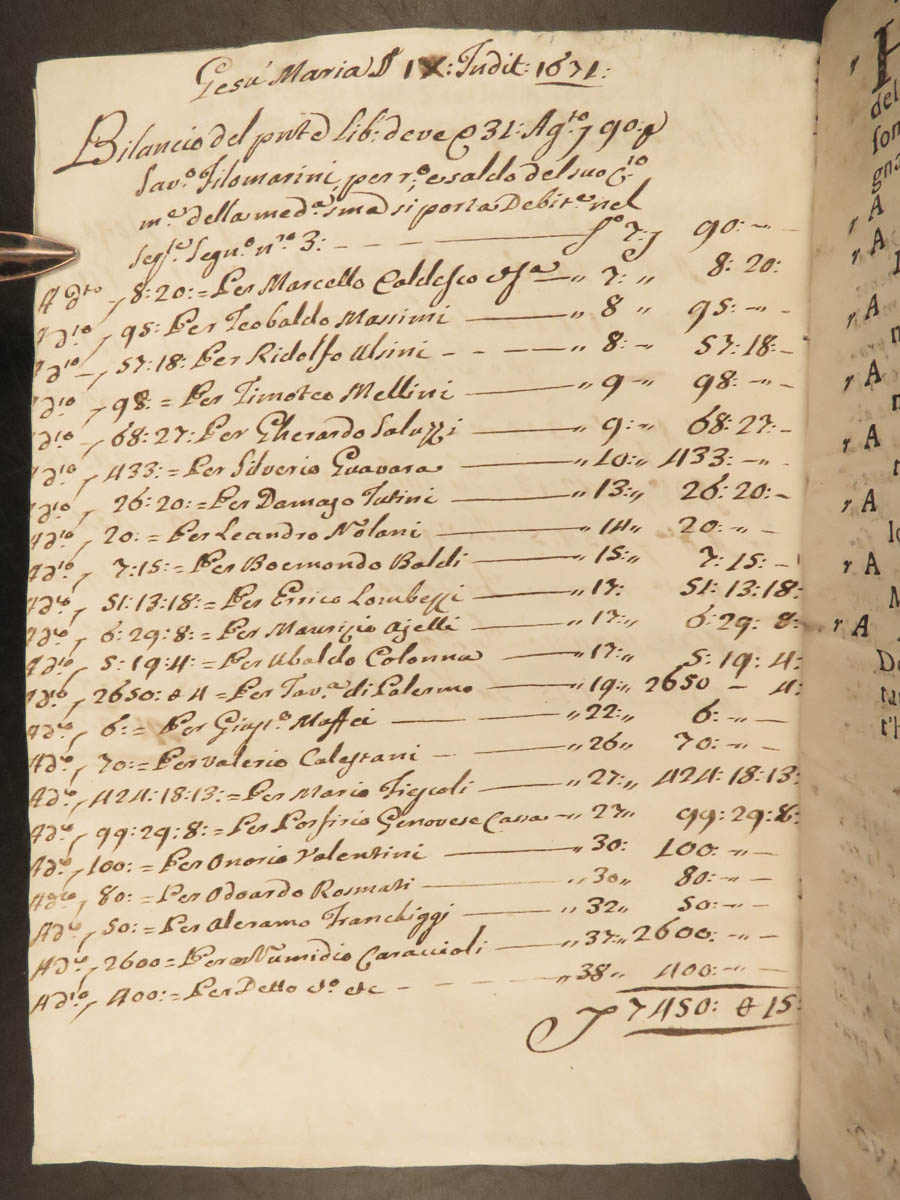 Gesù Maria IX: Indit: 1671:
Bilancio del pnte Lib: deve 31: Agto 90:
Savo: Filomarini, per ro, e saldo del suo Cto
ma della meda: sma si porta Debite nel
Segno nro 3: - - - fo 7: 90: - -
Adto 8: 20: = Per Marcello Caldesco 7: " 8: 20:
Adto 95: Per Teobaldo Massimi " 8 " 95: - -
Adto 57: 18: Per Ridolfo Alsini - - " 8: - 57: 18: -
Adto 98: = Per Timoteo Mellini " 9 " 98: - -
Adto 68: 27: Per Gherardo Saluzzi " 9: " 68: 27: -
Adto 433: = Per Silverio Guavara " 10: " 433: - -
Adto 26: 20: = Per Damaso Tutini " 13: " 26: 20: -
Adto 20: = Per Leandro Nolani " 14 " 20: - -
Adto 7: 15: = Per Boemondo Baldi " 15: " 7: 15: -
Adto 51: 13: 18: = Per Errico Lombezzi " 17: 51: 13: 18:
Adto 6: 29: 8: = Per Maurizio Ajelli " 17: " 6: 29: 8:
Adto 5: 19: 4: = Per Ubaldo Colonna " 17: " 5: 19: 4:
Adto 2650: & 4 = Per Tava di Palermo " 19: " 2650 - 4:
Adto 6: = Per Giuso Maffei " 22: " 6: - -
Adto 70: = Per Valerio Calestani - " 26 " 70: - -
Adto 424: 18: 13: = Per Mario Fiescoli " 27: " 424: 18: 13:
Adto 99: 29: 8: = Per Porfirio Genovese Cassa " 27 " 99: 29: 8:
Adto 100: = Per Onorio Valentini " 30: 100: - -
Adto 80: = Per Odoardo Rosmati " 30 " 80: - -
Adto 50: = Per Aleramo Franchiggi " 32 " 50: - -
Adto 2600 = Per Numidio Caraccioli " 37 " 2600: - -
Adto 400: = Per Detto etc - - - " 38 " 400: - -
7450: & 15: